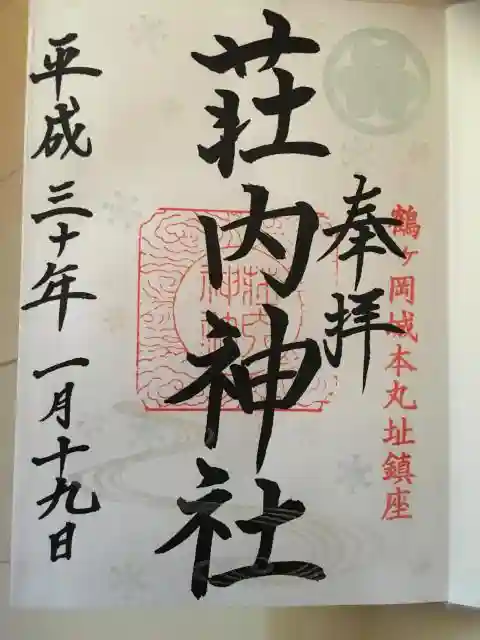 鶴ヶ岡城本丸址鎮座
奉拝
荘内神社
荘内
神社
平成三十年一月十九日